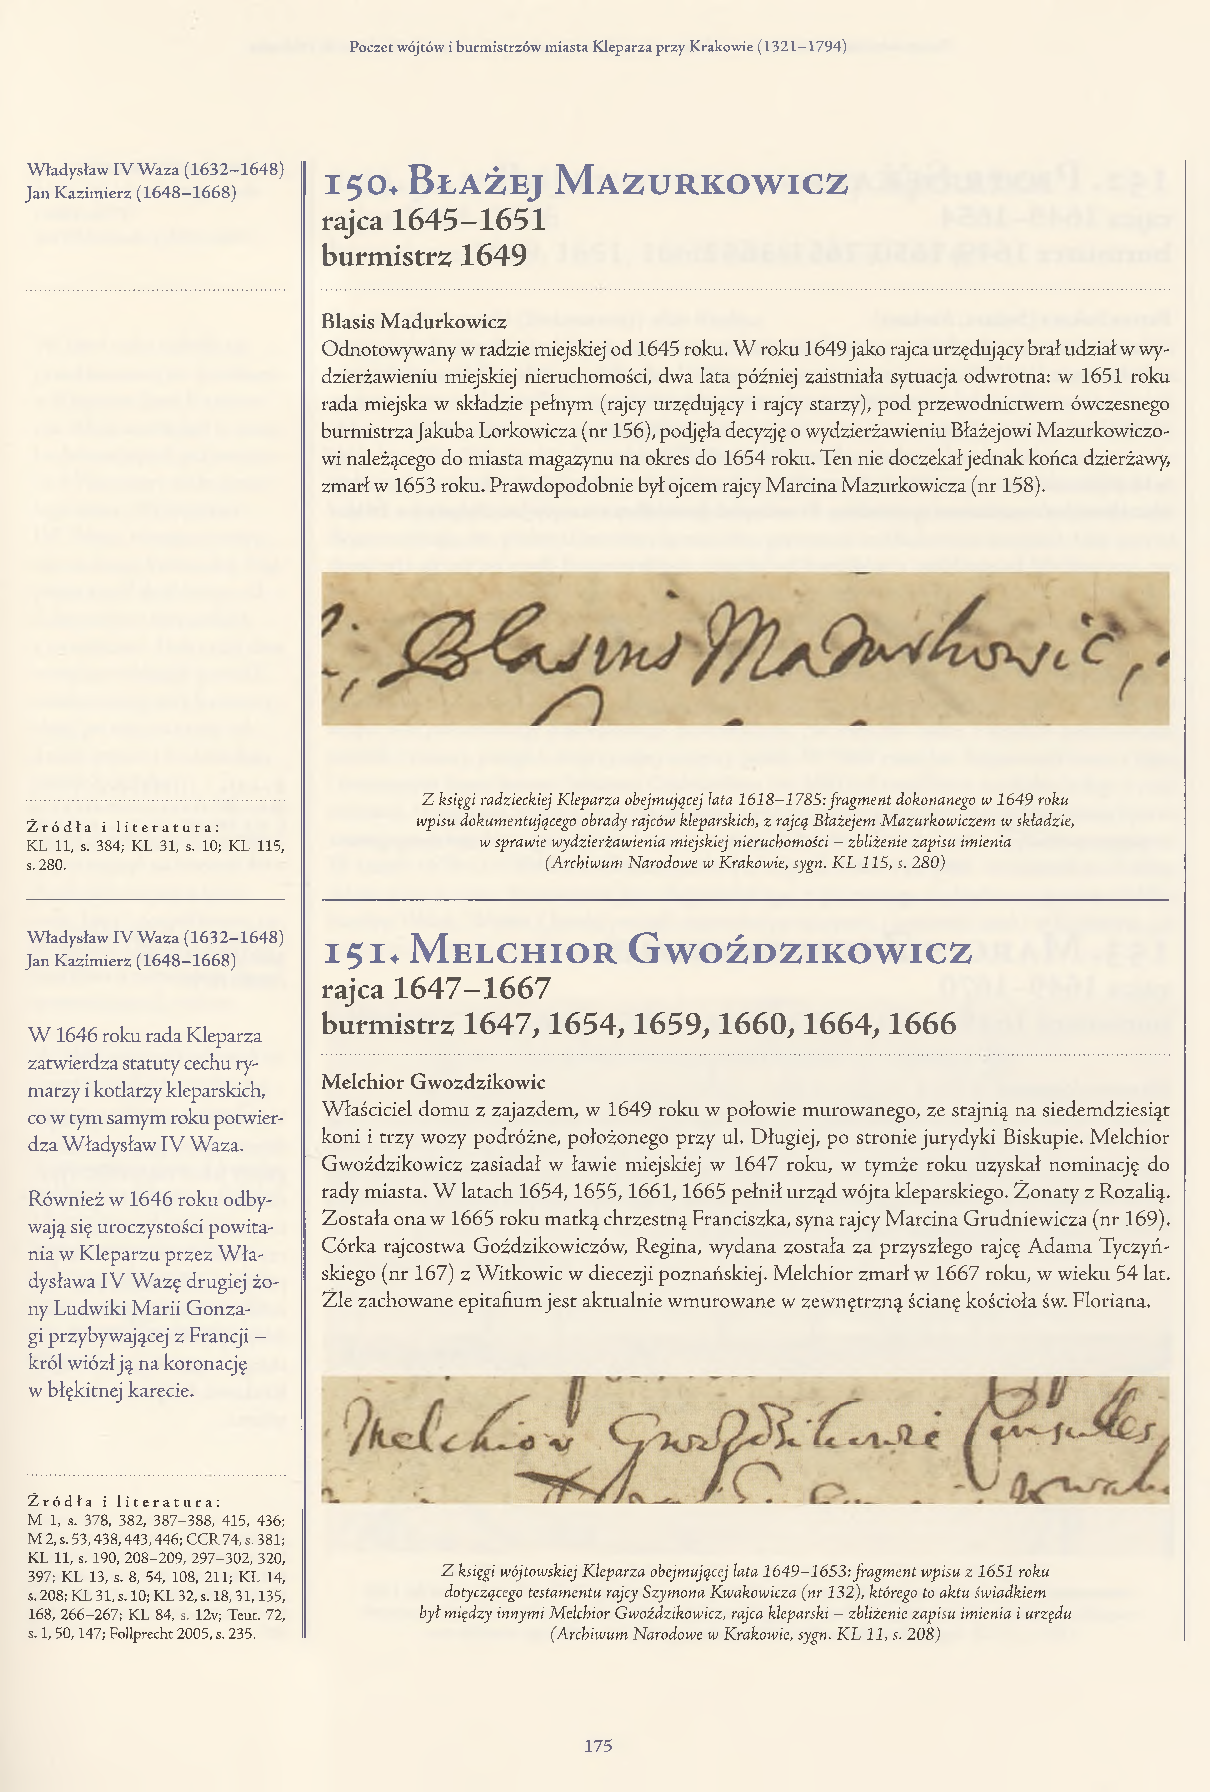 Poczet wójtów i burmistrzów miasta Kleparza przy Krakowie (1321–1794)
Władysław IV Waza (1632–1648)
Jan Kazimierz (1648–1668)
150. Błażej Mazurkowicz
rajca 1645–1651
burmistrz 1649
Blasis Madurkowicz
Odnotowywany w radzie miejskiej od 1645 roku. W roku 1649 jako rajca urzędujący brał udział w wy-
dzierżawieniu miejskiej nieruchomości, dwa lata później zaistniała sytuacja odwrotna: w 1651 roku
rada miejska w składzie pełnym (rajcy urzędujący i rajcy starzy), pod przewodnictwem ówczesnego
burmistrza Jakuba Lorkowicza (nr 156), podjęła decyzję o wydzierżawieniu Błażejowi Mazurkowiczo-
wi należącego do miasta magazynu na okres do 1654 roku. Ten nie doczekał jednak końca dzierżawy,
zmarł w 1653 roku. Prawdopodobnie był ojcem rajcy Marcina Mazurkowicza (nr 158).
Blasius Mazurkowic,
Z księgi radzieckiej Kleparza obejmującej lata 1618–1785: fragment dokonanego w 1649 roku
wpisu dokumentującego obrady rajców kleparskich, z rajcą Błażejem Mazurkowiczem w składzie,
w sprawie wydzierżawienia miejskiej nieruchomości – zbliżenie zapisu imienia
(Archiwum Narodowe w Krakowie, sygn. KL 115, s. 280)
Źródła i literatura:
KL 11, s. 384; KL 31, s. 10; KL 115,
s. 280.
Władysław IV Waza (1632–1648)
Jan Kazimierz (1648–1668)
W 1646 roku rada Kleparza
zatwierdza statuty cechu ry-
marzy i kotlarzy kleparskich,
co w tym samym roku potwier-
dza Władysław IV Waza.
Również w 1646 roku odby-
wają się uroczystości powita-
nia w Kleparzu przez Wła-
dysława IV Wazę drugiej żo-
ny Ludwiki Marii Gonza-
gi przybywającej z Francji –
król wiózł ją na koronację
w błękitnej karecie.
Źródła i literatura:
M 1, s. 378, 382, 387–388, 415, 436;
M 2, s. 53, 438, 443, 446; CCR 74, s. 381;
KL 11, s. 190, 208–209, 297–302, 320,
397; KL 13, s. 8, 54, 108, 211; KL 14,
s. 208; KL 31, s. 10; KL 32, s. 18, 31, 135,
168, 266–267; KL 84, s. 12v; Teut. 72,
s. 1, 50, 147; Follprecht 2005, s. 235.
151. Melchior Gwoździkowicz
rajca 1647–1667
burmistrz 1647, 1654, 1659, 1660, 1664, 1666
Melchior Gwozdzikowic
Właściciel domu z zajazdem, w 1649 roku w połowie murowanego, ze stajnią na siedemdziesiąt
koni i trzy wozy podróżne, położonego przy ul. Długiej, po stronie jurydyki Biskupie. Melchior
Gwoździkowicz zasiadał w ławie miejskiej w 1647 roku, w tymże roku uzyskał nominację do
rady miasta. W latach 1654, 1655, 1661, 1665 pełnił urząd wójta kleparskiego. Żonaty z Rozalią.
Została ona w 1665 roku matką chrzestną Franciszka, syna rajcy Marcina Grudniewicza (nr 169).
Córka rajcostwa Goździkowiczów, Regina, wydana została za przyszłego rajcę Adama Tyczyń-
skiego (nr 167) z Witkowic w diecezji poznańskiej. Melchior zmarł w 1667 roku, w wieku 54 lat.
Źle zachowane epitafium jest aktualnie wmurowane w zewnętrzną ścianę kościoła św. Floriana.
Melchior Consules,
Z księgi wójtowskiej Kleparza obejmującej lata 1649–1653: fragment wpisu z 1651 roku
dotyczącego testamentu rajcy Szymona Kwakowicza (nr 132), którego to aktu świadkiem
był między innymi Melchior Gwoździkowicz, rajca kleparski – zbliżenie zapisu imienia i urzędu
(Archiwum Narodowe w Krakowie, sygn. KL 11, s. 208)
175